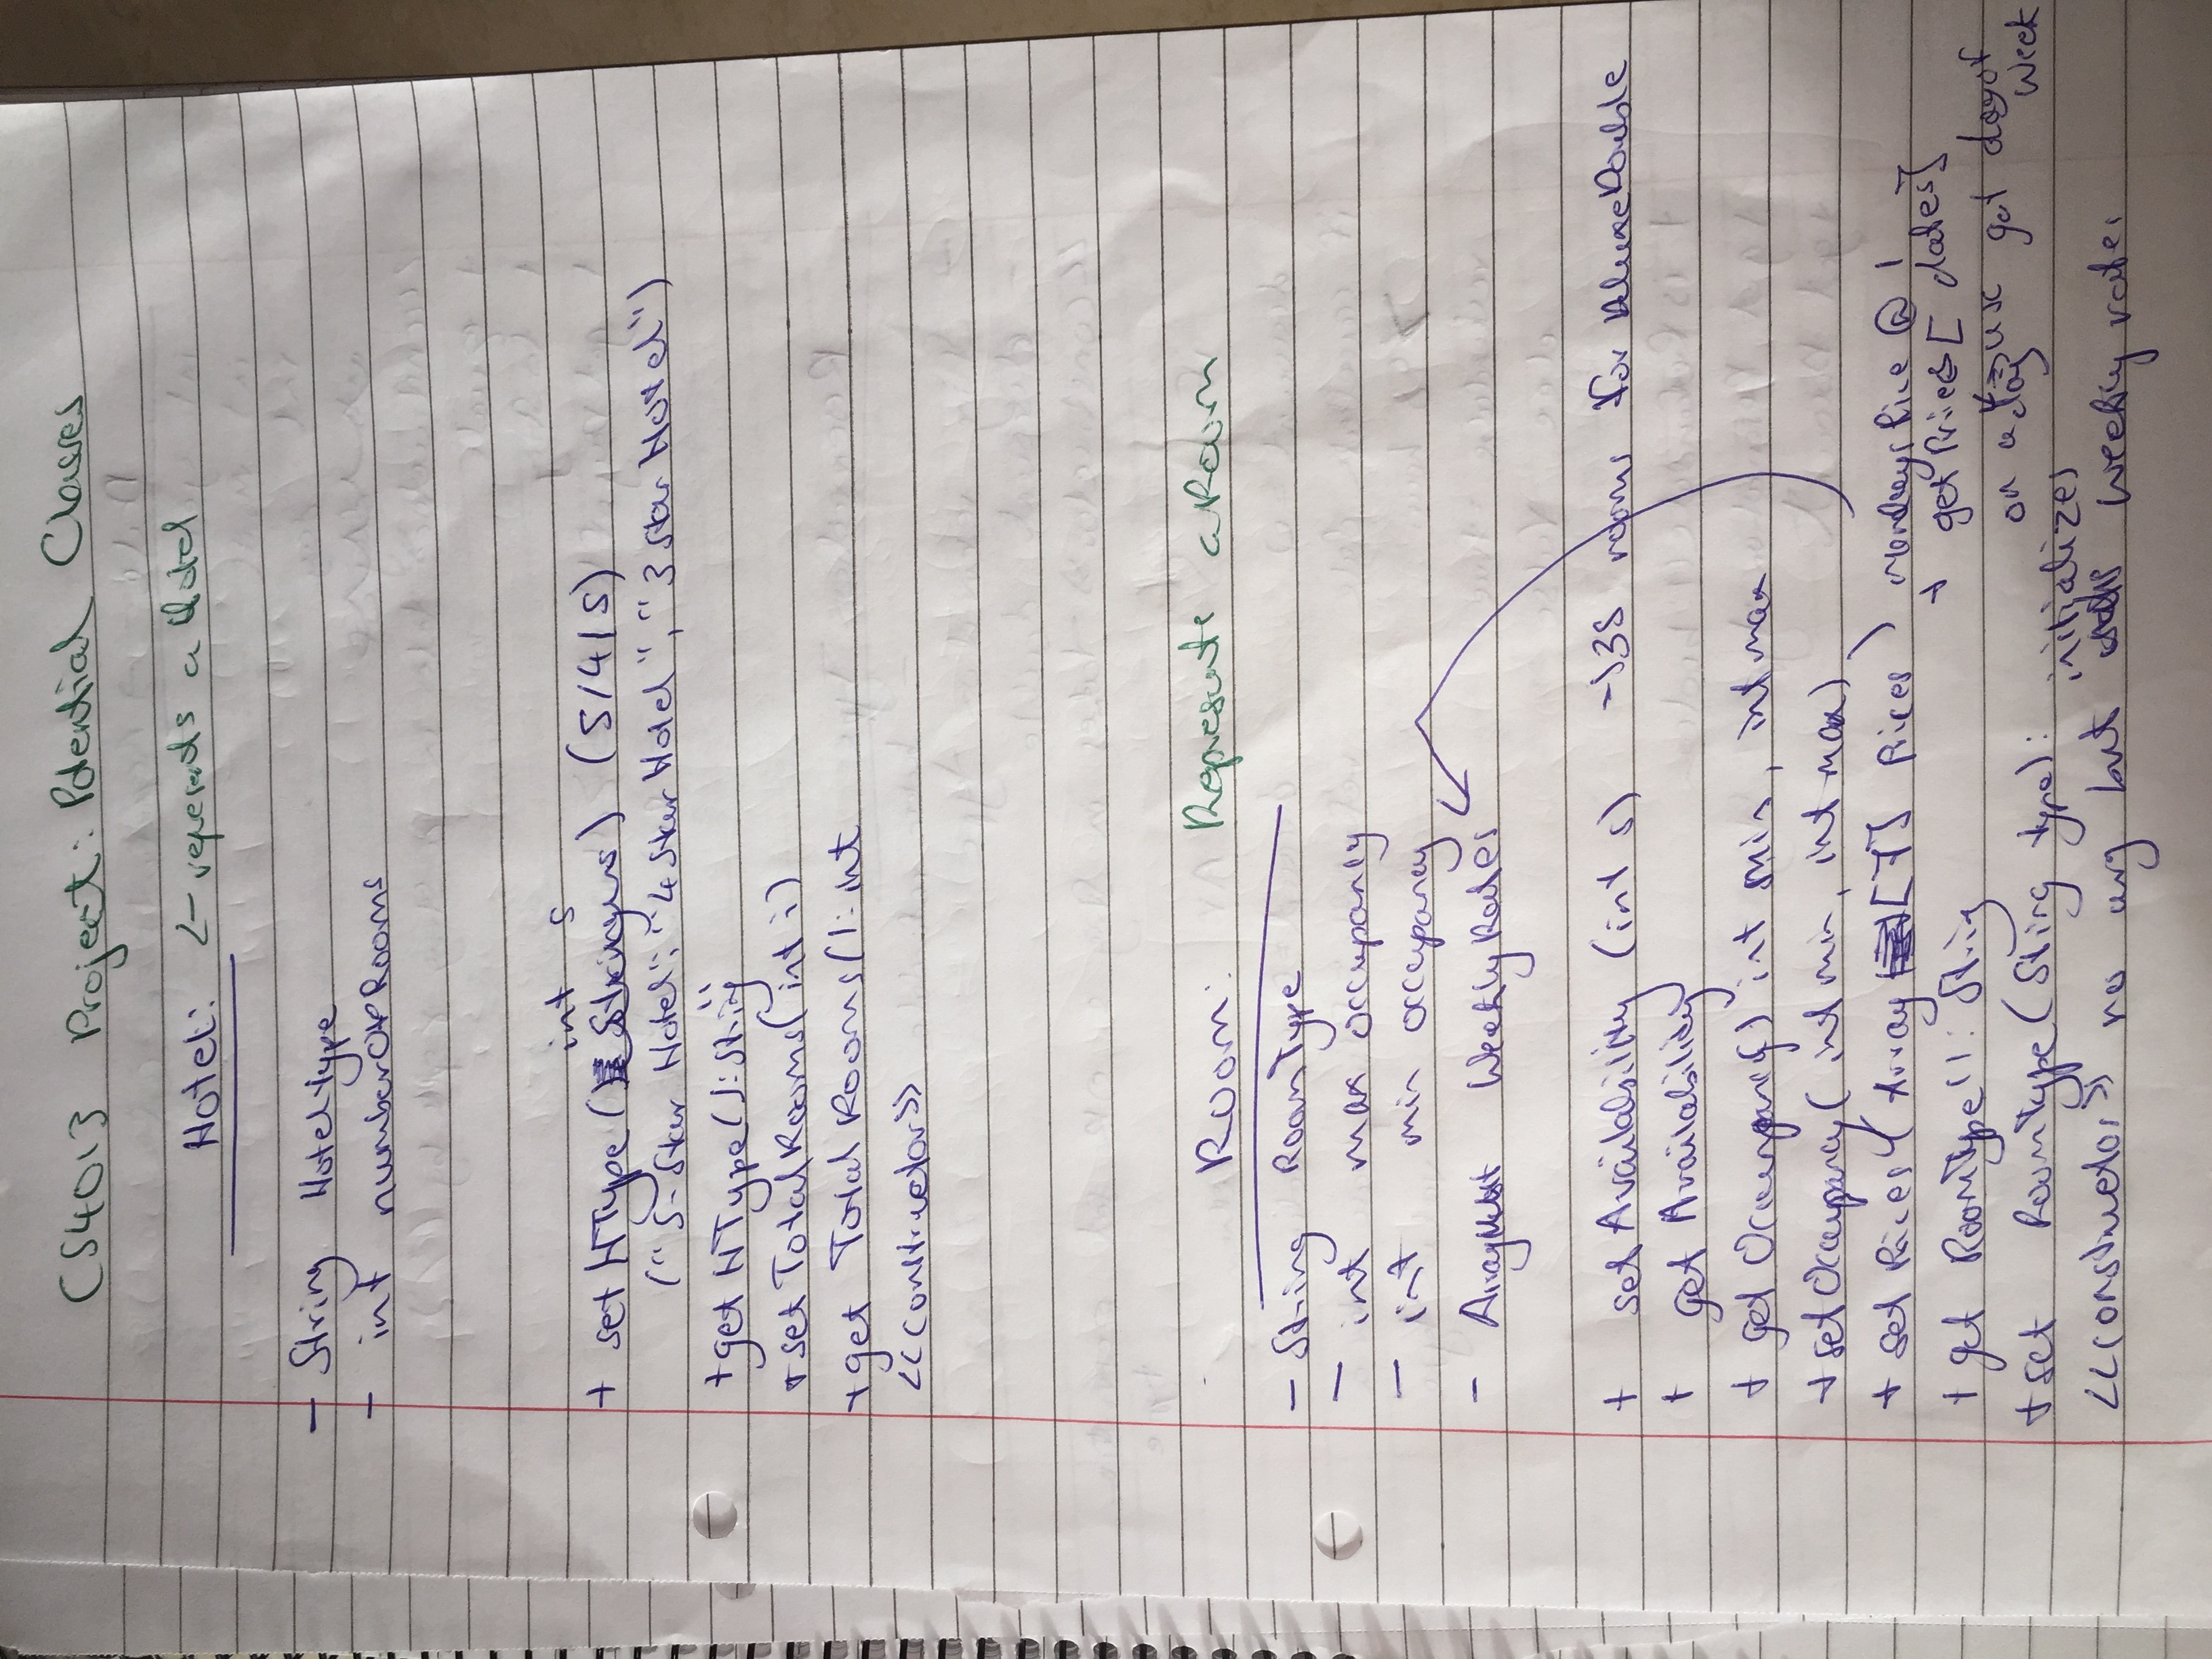 CS4013 Project: Potential Classes
Hotel: <- represents a Hotel
- String HotelType
- int numberOfRooms
int s
+ setHType (Strings) (5/4/S)
("5-Star Hotel", "4 Star Hotel", "3 Star Hotel")
+ get HType(): String
+ set TotalRooms(int i)
+ get Total Rooms(): int
<<constructor>>
Room: Represents a Room
- String RoomType
- int max occupancy
- int min occupancy
- Array WeeklyRates
+ setAvailability (int s) -> 35 rooms for DeluxeDouble
+ get Availability
+ get Occupancy() int min, int max
+ setOccupancy( int min, int max)
+ set Prices (Array [7] Prices) mondays Price @ 1
+ getPrices[ dates]
+ get RoomType(): String
on a day -> use get day of week
+ set RoomType(String type):
initializes
<<constructor>> no arg but weekly rates